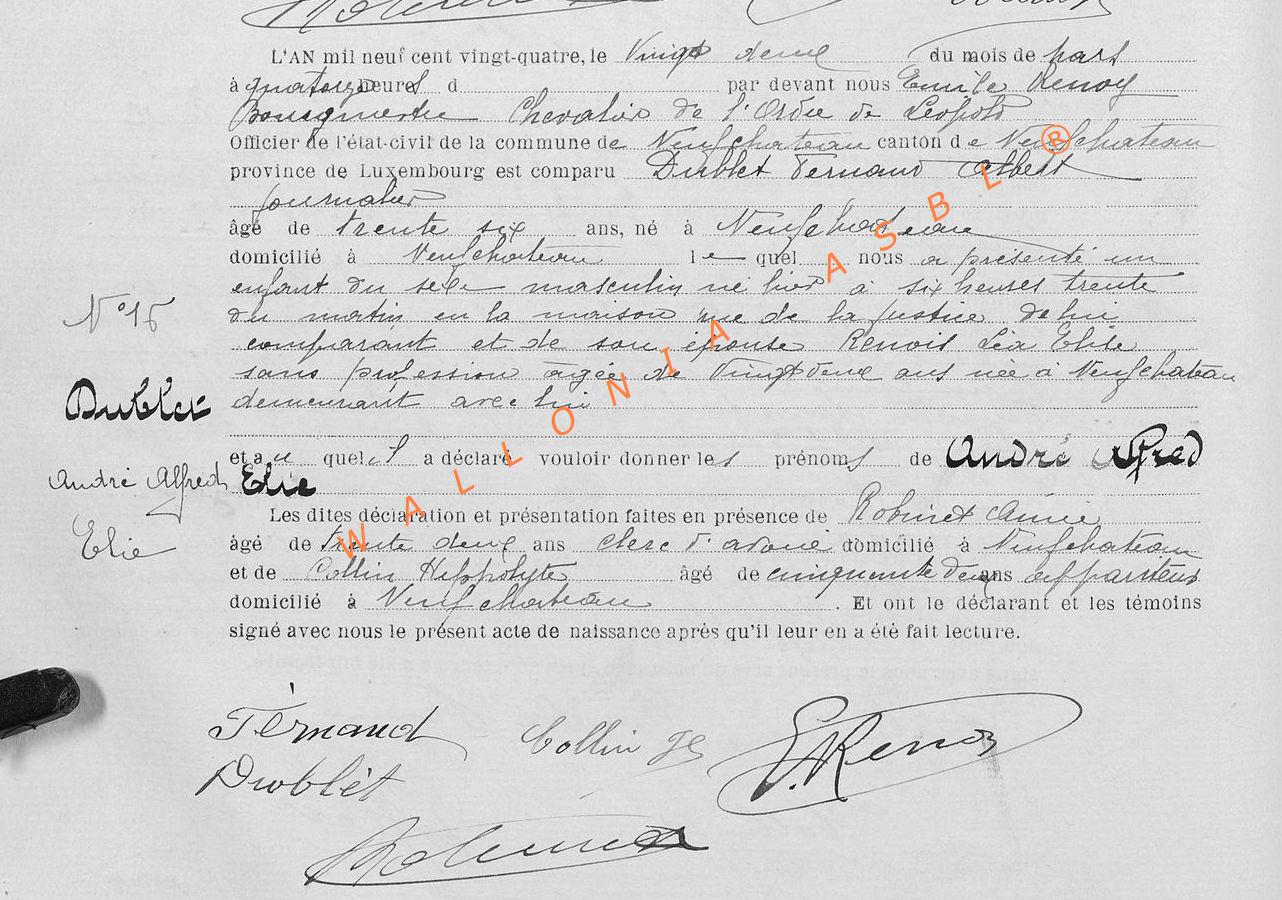 L'AN mil neuf cent vingt-quatre, le Vingt deux du mois de Mars
à quatorze heures d par devant nous Emile Renoy
Bourgmestre Chevalier de l'Ordre de Léopold
Officier de l'état-civil de la commune de Neufchateau canton de Neufchateau
province de Luxembourg est comparu Dublet Fernand Albert
journalier
âgé de trente six ans, né à Neufchateau
domicilié à Neufchateau le quel nous a présenté un
enfant du sexe masculin né hier à six heures trente
du matin en la maison rue de la Justice de lui
comparant et de son épouse Renoit Léa Elise
sans profession agée de Vingt deux ans née à Neufchateau
demeurant avec lui
N° 15
Dublet
André Alfred
Elie
et au quel il a déclaré vouloir donner les prénoms de André Alfred
Elie
Les dites déclaration et présentation faites en présence de Robinet
âgé de trente deux ans clerc d'avoué domicilié à Neufchateau
et de Collin Hippolyte âgé de cinquante deux ans appariteur
domicilié à Neufchateau . Et ont le déclarant et les témoins
signé avec nous le présent acte de naissance après qu'il leur en a été fait lecture.
Fernand Collin E. Renoy
Dublet
WALLONIA ASBL ®